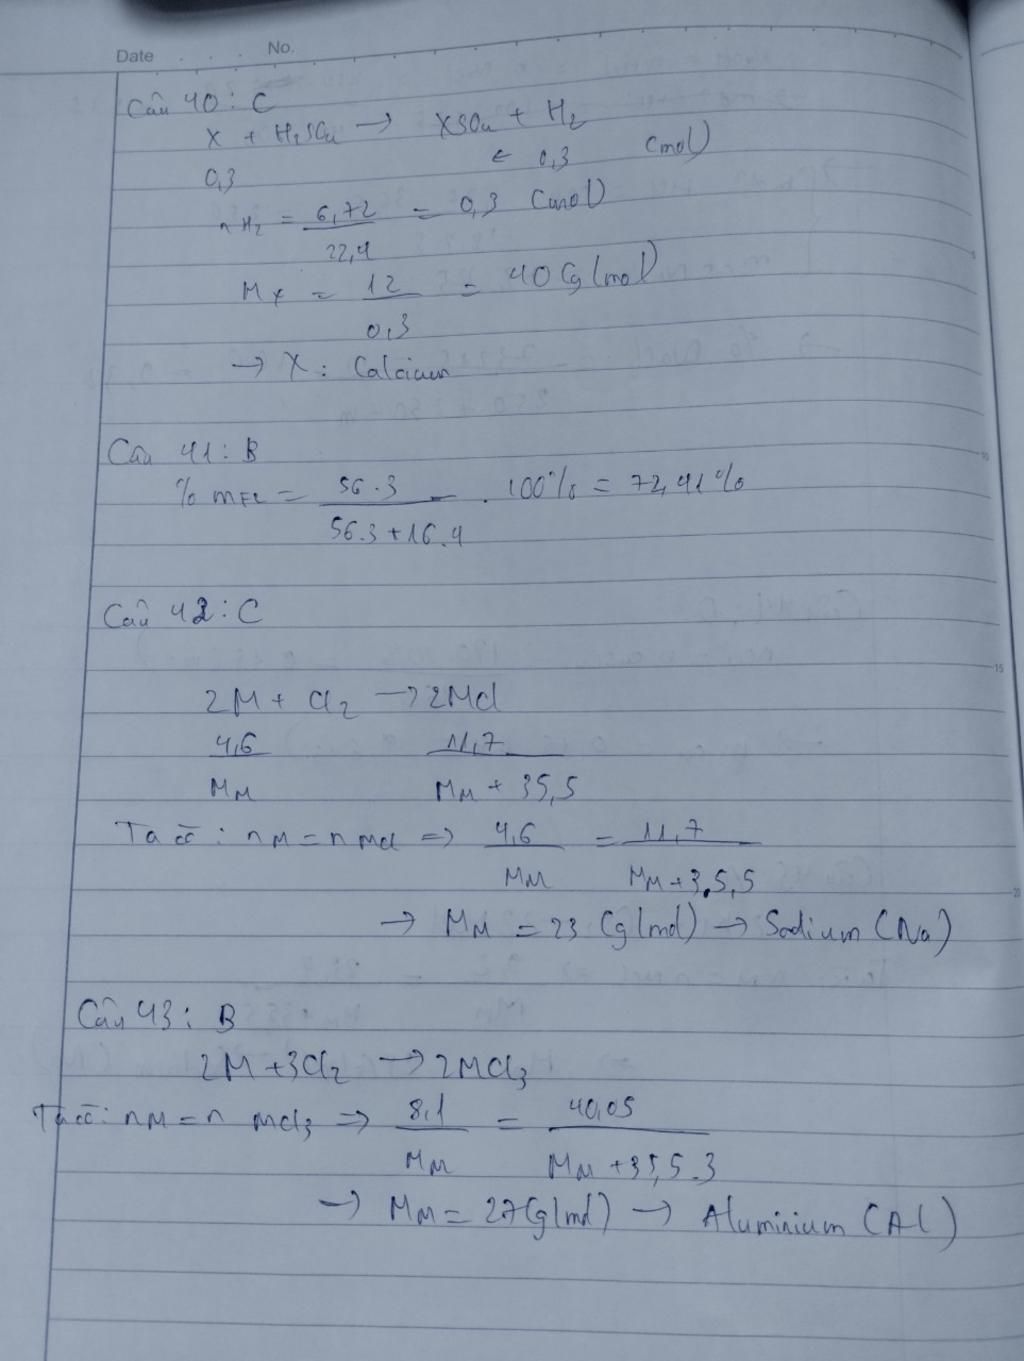 Date No.
Câu 40 : C
X + H₂SO₄ → XSO₄ + H₂
0,3 ← 0,3 (mol)
nH₂ = 6,72 / 22,4 = 0,3 (mol)
Mx = 12 / 0,3 = 40 (g/mol)
→ X : Calcium
Câu 41 : B
% mFe = 56.3 / 56.3 + 16.4 . 100% = 72,41%
Câu 42 : C
2M + Cl₂ → 2MCl
4,6 / MM 11,7 / MM + 35,5
Ta có : nM = nMCl => 4,6 / MM = 11,7 / MM + 3.5,5
→ MM = 23 (g/mol) → Sodium (Na)
Câu 43 : B
2M + 3Cl₂ → 2MCl₃
Ta có : nM = n MCl₃ => 8,1 / MM = 40,05 / MM + 35,5.3
→ MM = 27 (g/mol) → Aluminium (Al)
10
15
20